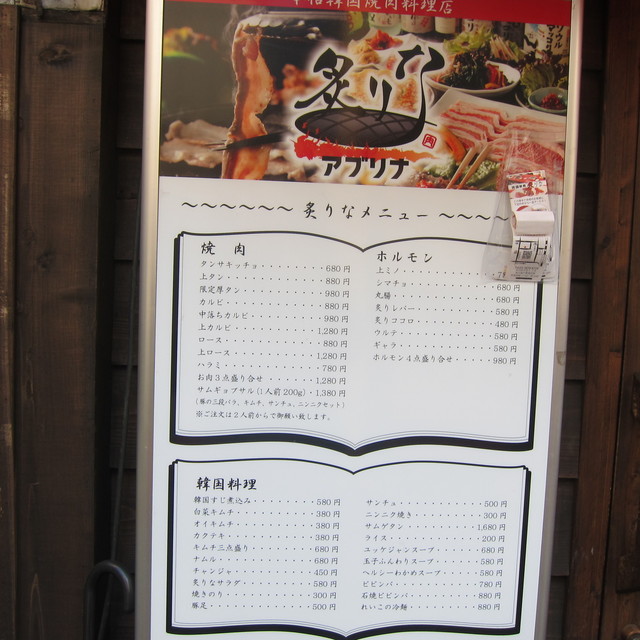 韓国焼肉料理店
炙りな
アブリナ
〜〜〜〜〜〜 炙りなメニュー 〜〜〜〜
焼 肉
タンサキッチョ・・・・・・・・680円
上タン・・・・・・・・・・・・880円
限定厚タン・・・・・・・・・・980円
カルビ・・・・・・・・・・・・880円
中落ちカルビ・・・・・・・・・980円
上カルビ・・・・・・・・・・1,280円
ロース・・・・・・・・・・・・880円
上ロース・・・・・・・・・・1,280円
ハラミ・・・・・・・・・・・・780円
お肉3点盛り合せ・・・・・・1,280円
サムギョプサル(1人前200g)・1,380円
(豚の三段バラ、キムチ、サンチュ、ニンニクセット)
※ご注文は2人前からで御願い致します。
ホルモン
上ミノ・・・・・・・・・・・
シマチョ・・・・・・・・・・680円
丸腸・・・・・・・・・・・・680円
炙りレバー・・・・・・・・・580円
炙りココロ・・・・・・・・・480円
ウルテ・・・・・・・・・・・580円
ギャラ・・・・・・・・・・・580円
ホルモン4点盛り合せ・・・・・980円
韓国料理
韓国すじ煮込み・・・・・・・・580円
白菜キムチ・・・・・・・・・・380円
オイキムチ・・・・・・・・・・380円
カクテキ・・・・・・・・・・・380円
キムチ三点盛り・・・・・・・・680円
ナムル・・・・・・・・・・・・680円
チャンジャ・・・・・・・・・・450円
炙りなサラダ・・・・・・・・・580円
焼きのり・・・・・・・・・・・300円
豚足・・・・・・・・・・・・・500円
サンチュ・・・・・・・・・・・500円
ニンニク焼き・・・・・・・・・300円
サムゲタン・・・・・・・・・1,680円
ライス・・・・・・・・・・・・200円
ユッケジャンスープ・・・・・・680円
玉子ふんわりスープ・・・・・・580円
ヘルシーわかめスープ・・・・・580円
ビビンバ・・・・・・・・・・・780円
石焼ビビンバ・・・・・・・・・880円
れいこの冷麺・・・・・・・・・880円